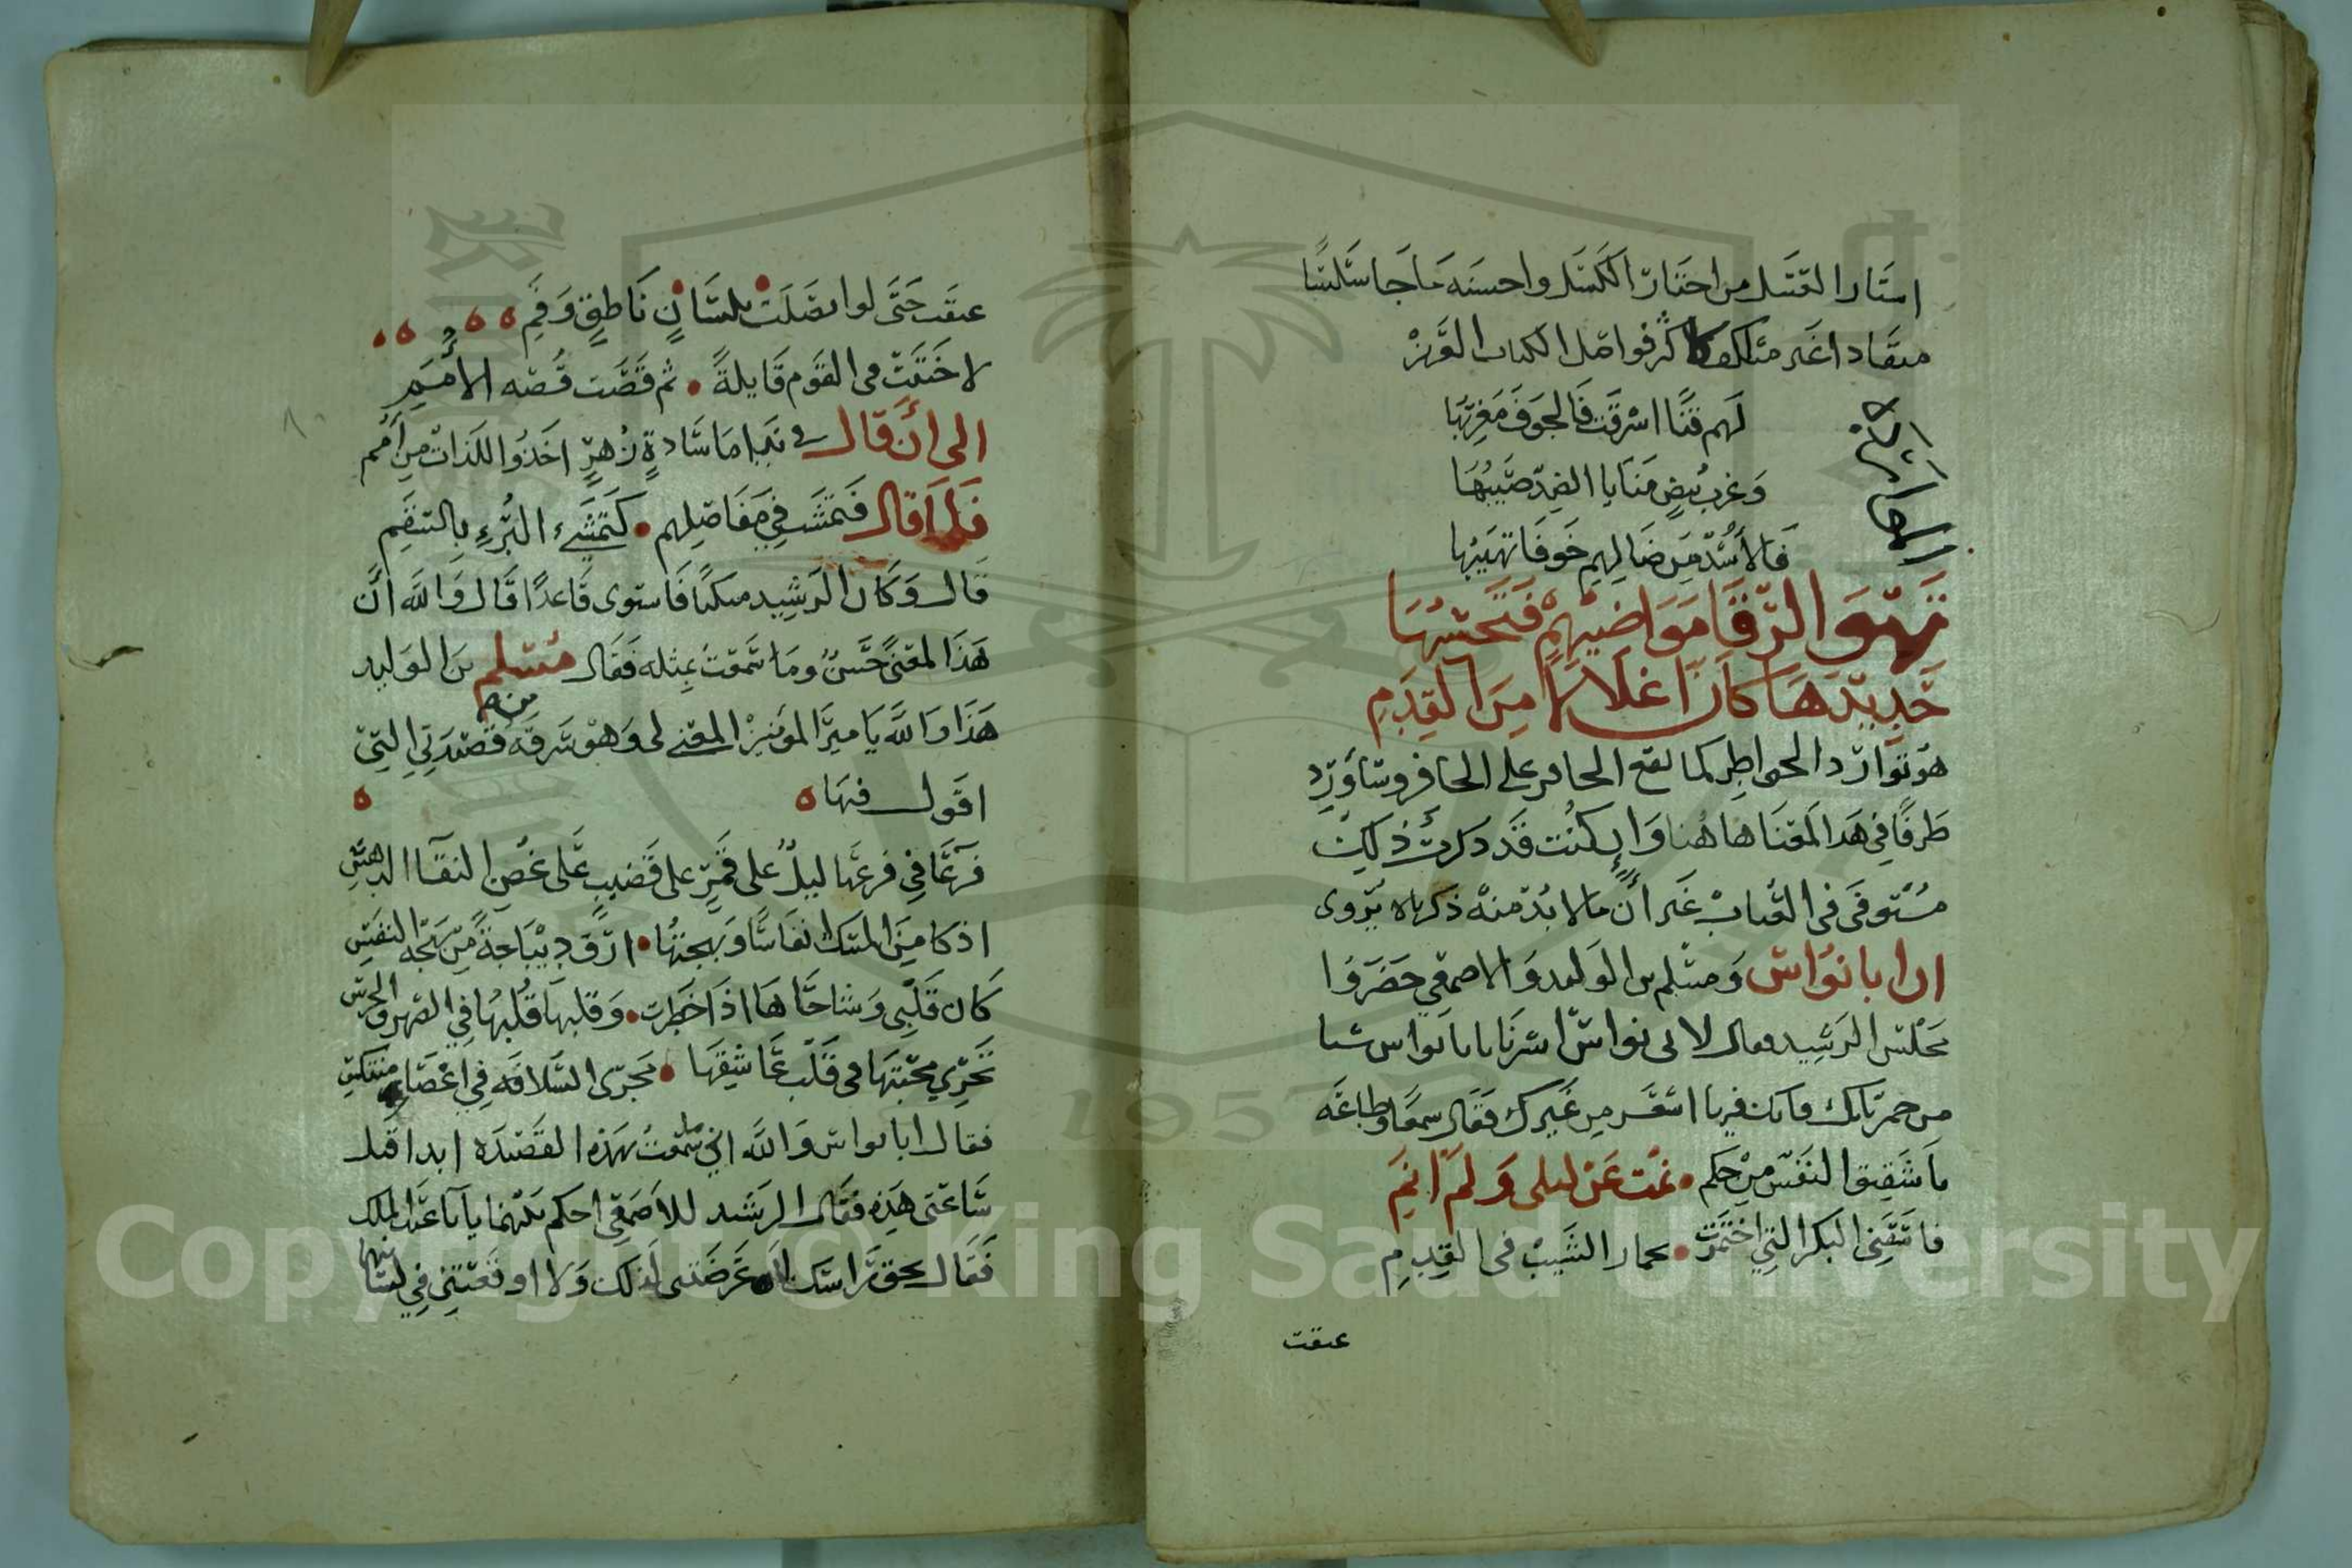 استار العسل من اختار الكسل واحسنه ما جا سلسا
منقادا غير متكلف كاكثر فواصل الكتاب العزيز
لهم قنا اشرقت فالجوف مغربها
وغرب بيض منايا الضد صيبها
فالأسد من ضالهم خوفا تهيبها
تهوى الرقا مواضيهم فتحسبها
حديدها كان اغلالا من القدم
هو توارد الخواطر كما يقع الحافر على الحافر وساورد
طرفا في هذا المعنا هاهنا وإن كنت قد ذكرت ذلك
مستوفى في العتاب غير أن ما لا بد منه ذكرناه يروى
ان ابا نواس ومسلم بن الوليد والاصمعي حضروا
مجلس الرشيد فقال لابي نواس اشرنا يا ابا نواس شيا
من خمرياتك فانك فيها اشعر من غيرك فقال سمعا وطاعه
يا شقيق النفس من حكم • نمت عن ليلى ولم انم
فاسقني البكر التي اختمرت • بخمار الشيب في القدم
عتقت
عتقت حتى لو اتصلت • بلسان ناطق وفم
لاحتبت في القوم قايلة • ثم قصت قصه الامم
الى أن قال في ندامى سادة زهر اخذوا اللذات من امم
فلما قال فتمشت في مفاصلهم • كتمشي البرء بالسقم
قال وكان الرشيد متكيا فاستوى قاعدا قال والله ان
هذا لمعنى حسن وما سمعت بمثله فقال مسلم بن الوليد
هذا والله يا مير المومنين المعنى لي وهو سرقه من قصيدتي التي
اقول فيها
فرعا في فرعها ليل على قمر على قضيب على غصن النقا الدهس
اذكا من المسك انفاسا وبهجتها • ارق ديباجة من بهجه النفس
كان قلبي وشاحاها اذا خطرت • وقلبها قلبها في الصمت والخرس
تجري محبتها في قلب عاشقها • مجرى السلافه في اعضاء منتكس
فقال ابا نواس والله اني ما سمعت بهذه القصيده ابدا قبل
ساعتي هذه فقال الرشيد للاصمعي احكم بينهما يا ابا عبد الملك
فقال بحق راسك لا عرضتني لذلك ولا اوقعتني في لسانهما